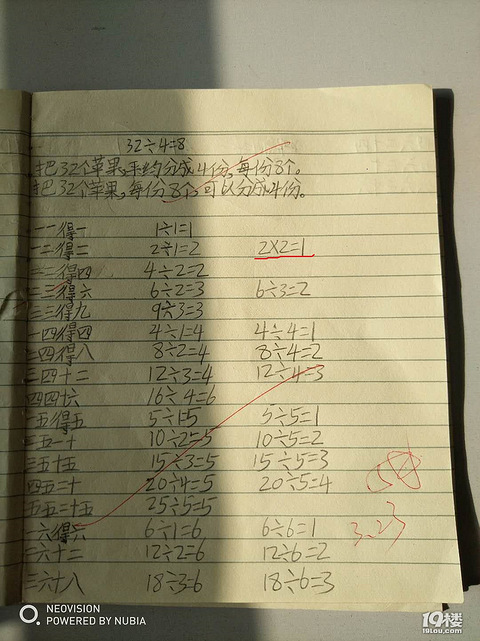 32÷4=8
把32个苹果,平均分成4份,每份8个。
把32个苹果,每份8个,可以分成4份。
一一得一 1÷1=1
一二得二 2÷1=2 2×2=1
二二得四 4÷2=2
二三得六 6÷2=3 6÷3=2
三三得九 9÷3=3
一四得四 4÷1=4 4÷4=1
二四得八 8÷2=4 8÷4=2
三四十二 12÷3=4 12÷4=3
四四十六 16÷4=6
一五得五 5÷1=5 5÷5=1
二五一十 10÷2=5 10÷5=2
三五十五 15÷3=5 15÷5=3
四五二十 20÷4=5 20÷5=4
五五二十五 25÷5=5
一六得六 6÷1=6 6÷6=1
二六十二 12÷2=6 12÷6=2
三六十八 18÷3=6 18÷6=3
3.23
NEOVISION
POWERED BY NUBIA
19楼
19lou.com